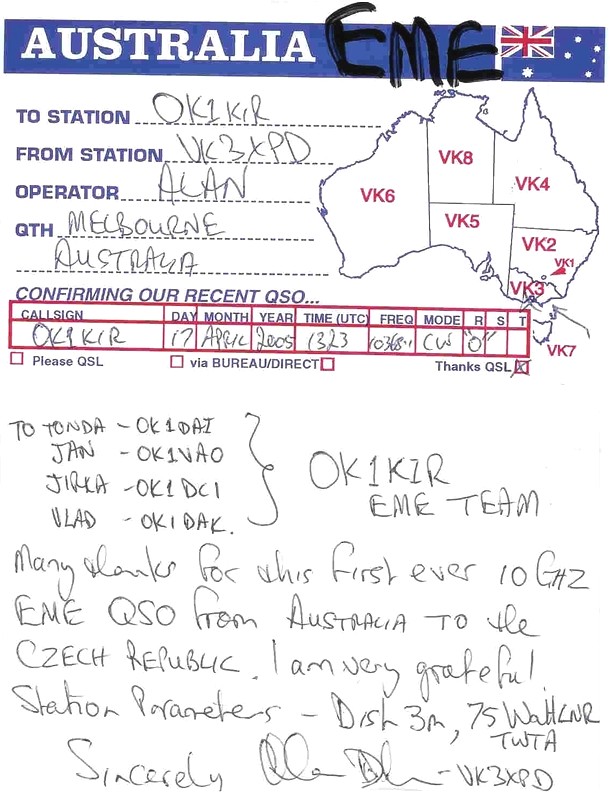 AUSTRALIA EME
TO STATION OK1KIR
FROM STATION VK3XPD
OPERATOR ALAN
QTH MELBOURNE
AUSTRALIA
VK8
VK6
VK4
VK5
VK2
VK1
VK3
VK7
CONFIRMING OUR RECENT QSO...
CALLSIGN DAY MONTH YEAR TIME (UTC) FREQ MODE R S T
OK1KIR 17 APRIL 2005 1323 10368.1 CW "O"
Please QSL via BUREAU/DIRECT Thanks QSL X
TO TONDA - OK1DAI
JAN - OK1VAO
JIRKA - OK1DCI
VLAD - OK1DAK.
OK1KIR
EME TEAM
Many thanks for this first ever 10 GHZ
EME QSO from AUSTRALIA TO the
CZECH REPUBLIC. I am very grateful.
Station Parameters - Dish 3m, 75 Watt LNR
TWTA
Sincerely - VK3XPD